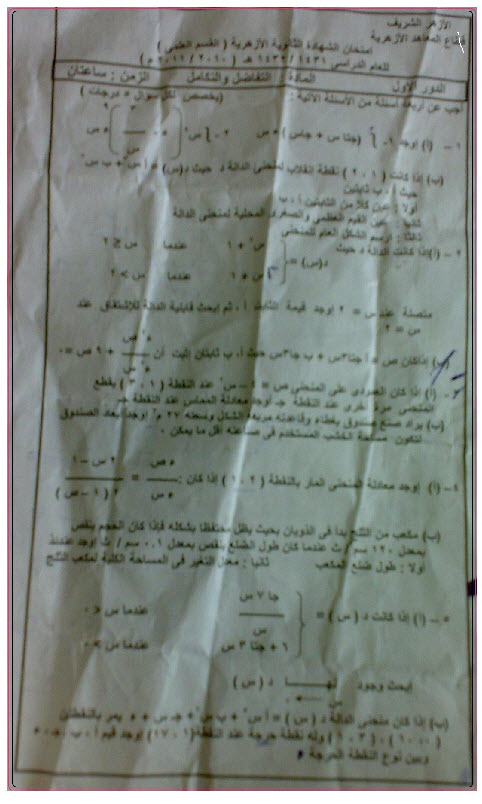 الأزهر الشريف
قطاع المعاهد الأزهرية
امتحان الشهادة الثانوية الأزهرية ( القسم العلمى )
للعام الدراسى ١٤٣١/ ١٤٣٢ هـ ( ٢٠١٠/ ٢٠١١ م )
الدور الأول المادة : التفاضل والتكامل الزمن : ساعتان
أجب عن أربعة أسئلة من الأسئلة الآتية : ( يخصص لكل سؤال ٥ درجات )
١ – (أ) أوجد ١- ∫ (جتا س + جاس) ء س ٢ - ∫ س
(ب) إذا كانت ( ١ ، ٢ ) نقطة انقلاب لمنحنى الدالة د حيث د(س) = أ س³ + ب س²
حيث أ ، ب ثابتين
أولا : عين كلا من الثابتين أ ، ب
ثانيا : عين القيم العظمى والصغرى المحلية لمنحنى الدالة
ثالثا : ارسم الشكل العام للمنحنى
٢ – (أ) إذا كانت الدالة د حيث
د(س) =
س² + ١ عندما س ≤ ٢
أ س + ١ عندما س > ٢
متصلة عند س = ٢ أوجد قيمة الثابت أ ، ثم ابحث قابلية الدالة للاشتقاق عند
س = ٢
(ب) إذا كان ص = أ جتا٣س + ب جا٣س حيث أ، ب ثابتان إثبت أن ء²ص / ء س² + ٩ ص = ٠
٣ – (أ) إذا كان العمودى على المنحنى ص = ٤ – س² عند النقطة ( ١ ، ٣ ) يقطع
المنحنى مرة أخرى عند النقطة جـ أوجد معادلة المماس عند النقطة جـ
(ب) يراد صنع صندوق بغطاء وقاعدته مربعة الشكل وسعته ٢٧ م³ أوجد أبعاد الصندوق
لتكون مساحة الخشب المستخدم فى صناعته أقل ما يمكن .
٤ – (أ) أوجد معادلة المنحنى المار بالنقطة ( ٢ ، ١ ) إذا كان : ء ص / ء س = ٢ س – ١ / ٢ ( ١ – ص )
(ب) مكعب من الثلج بدأ فى الذوبان بحيث يظل محتفظا بشكله فإذا كان الحجم ينقص
بمعدل ١٢٠ سم³ / ث عندما كان طول الضلع ينقص بمعدل ٠.١ سم / ث أوجد عندئذ
أولا : طول ضلع المكعب ثانيا : معدل التغير فى المساحة الكلية لمكعب الثلج
٥ – (أ) إذا كانت د ( س ) =
جا ٧ س / س عندما س < ٠
٦ + جتا ٣ س عندما س > ٠
ابحث وجود نهـــا د ( س )
س ← ٠
(ب) إذا كان منحنى الدالة د ( س ) = أ س³ + ب س² + جـ س + ء يمر بالنقطتان
وله نقطة حرجة عند النقطة أوجد قيم أ ، ب ، جـ ، ء
وبين نوع النقطة الحرجة